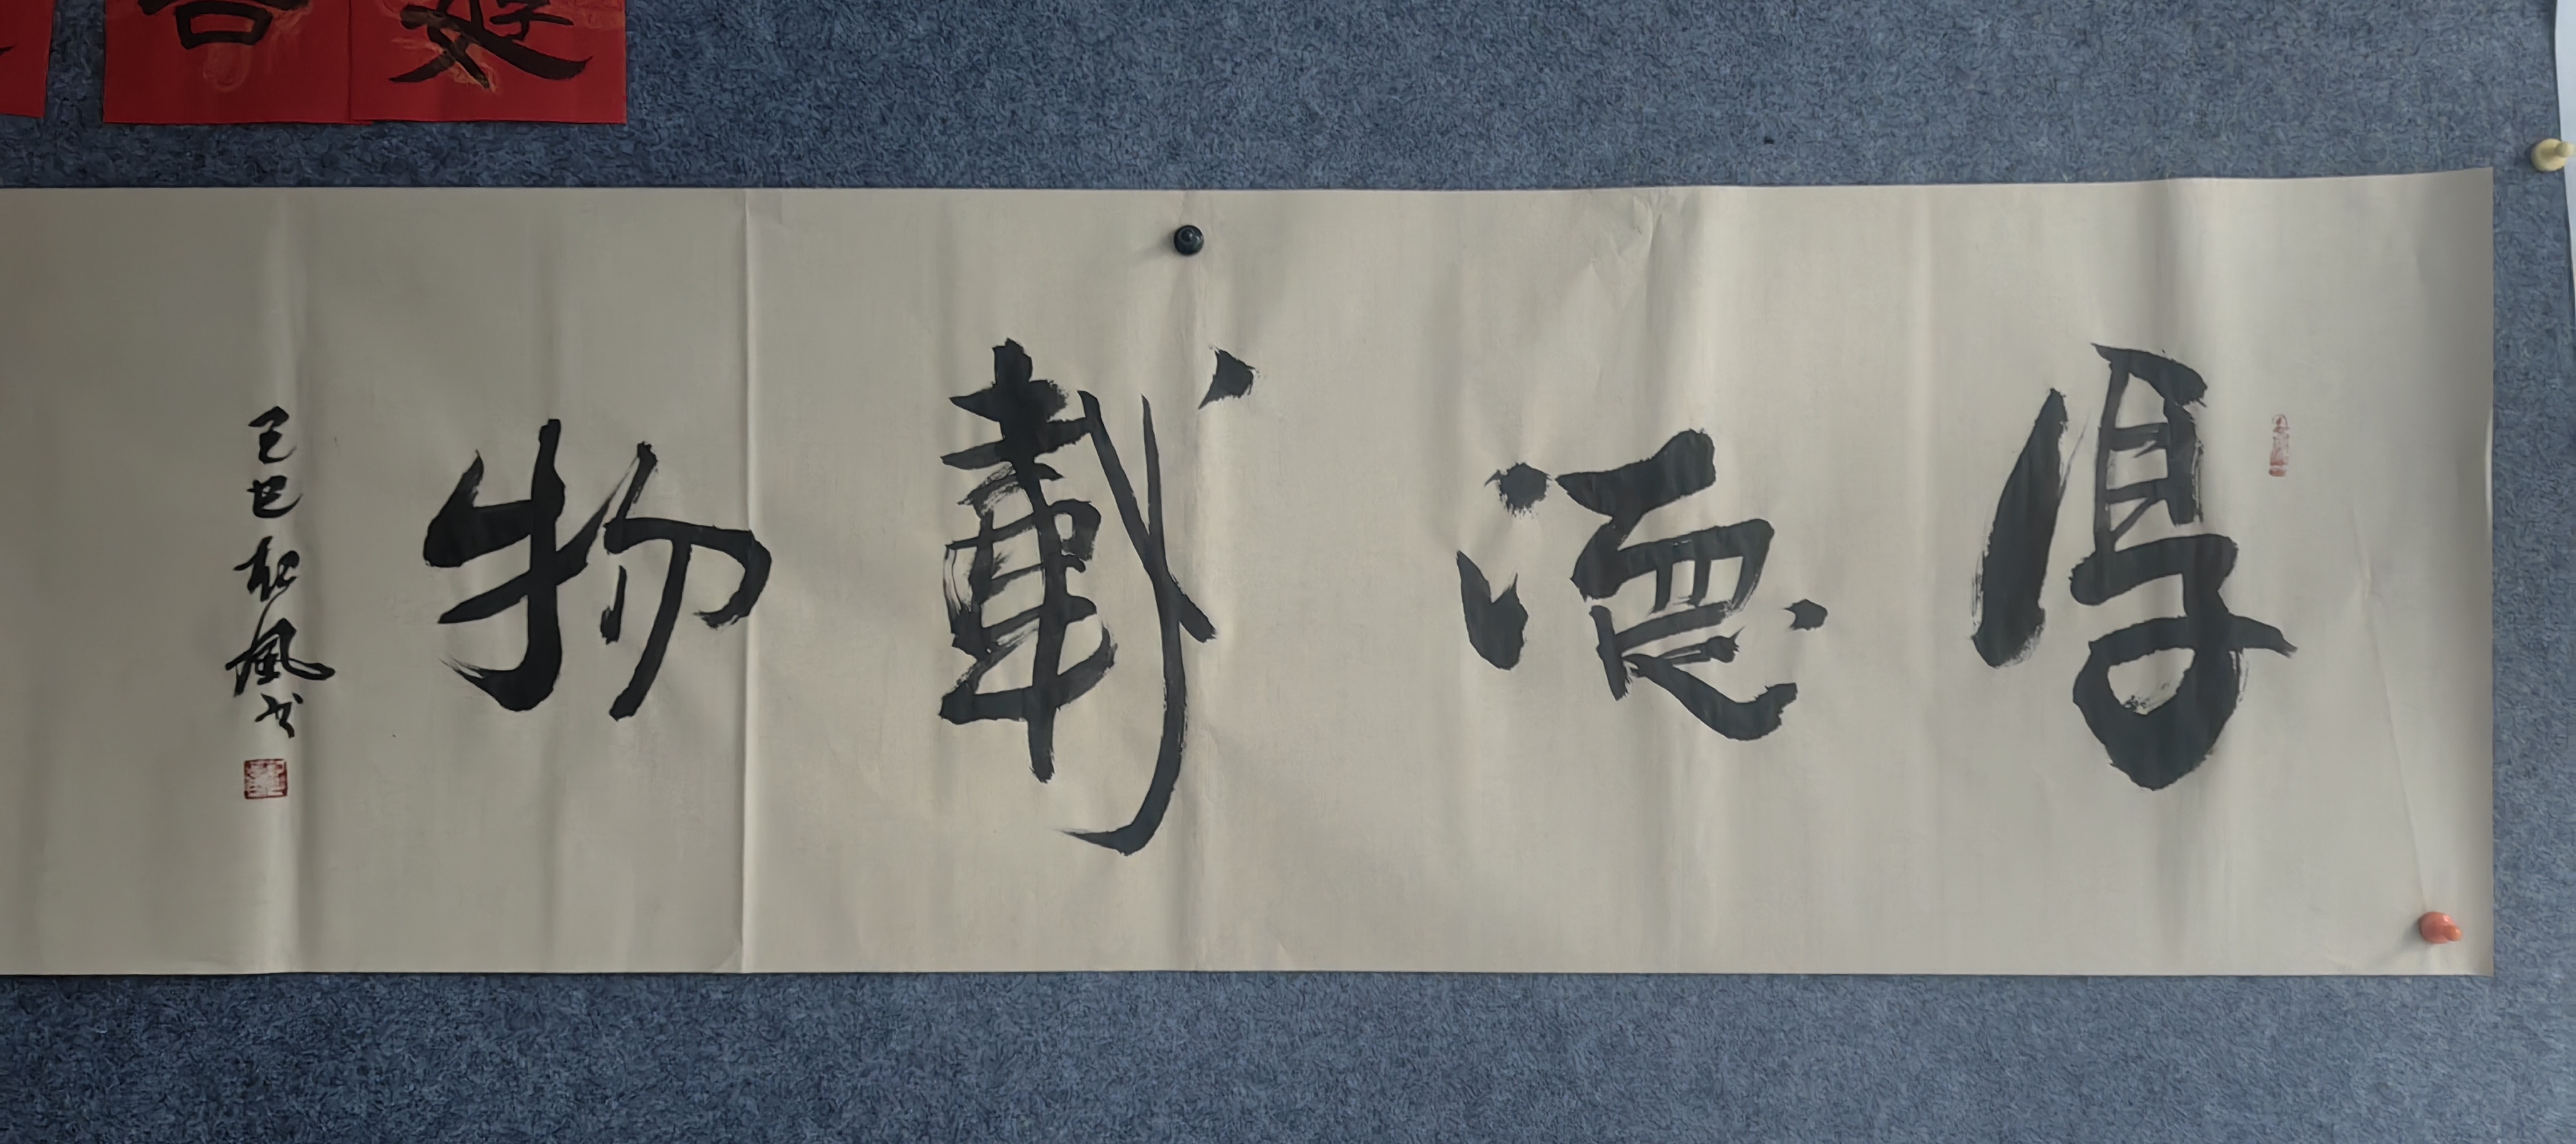 厚德載物
乙巳松風书